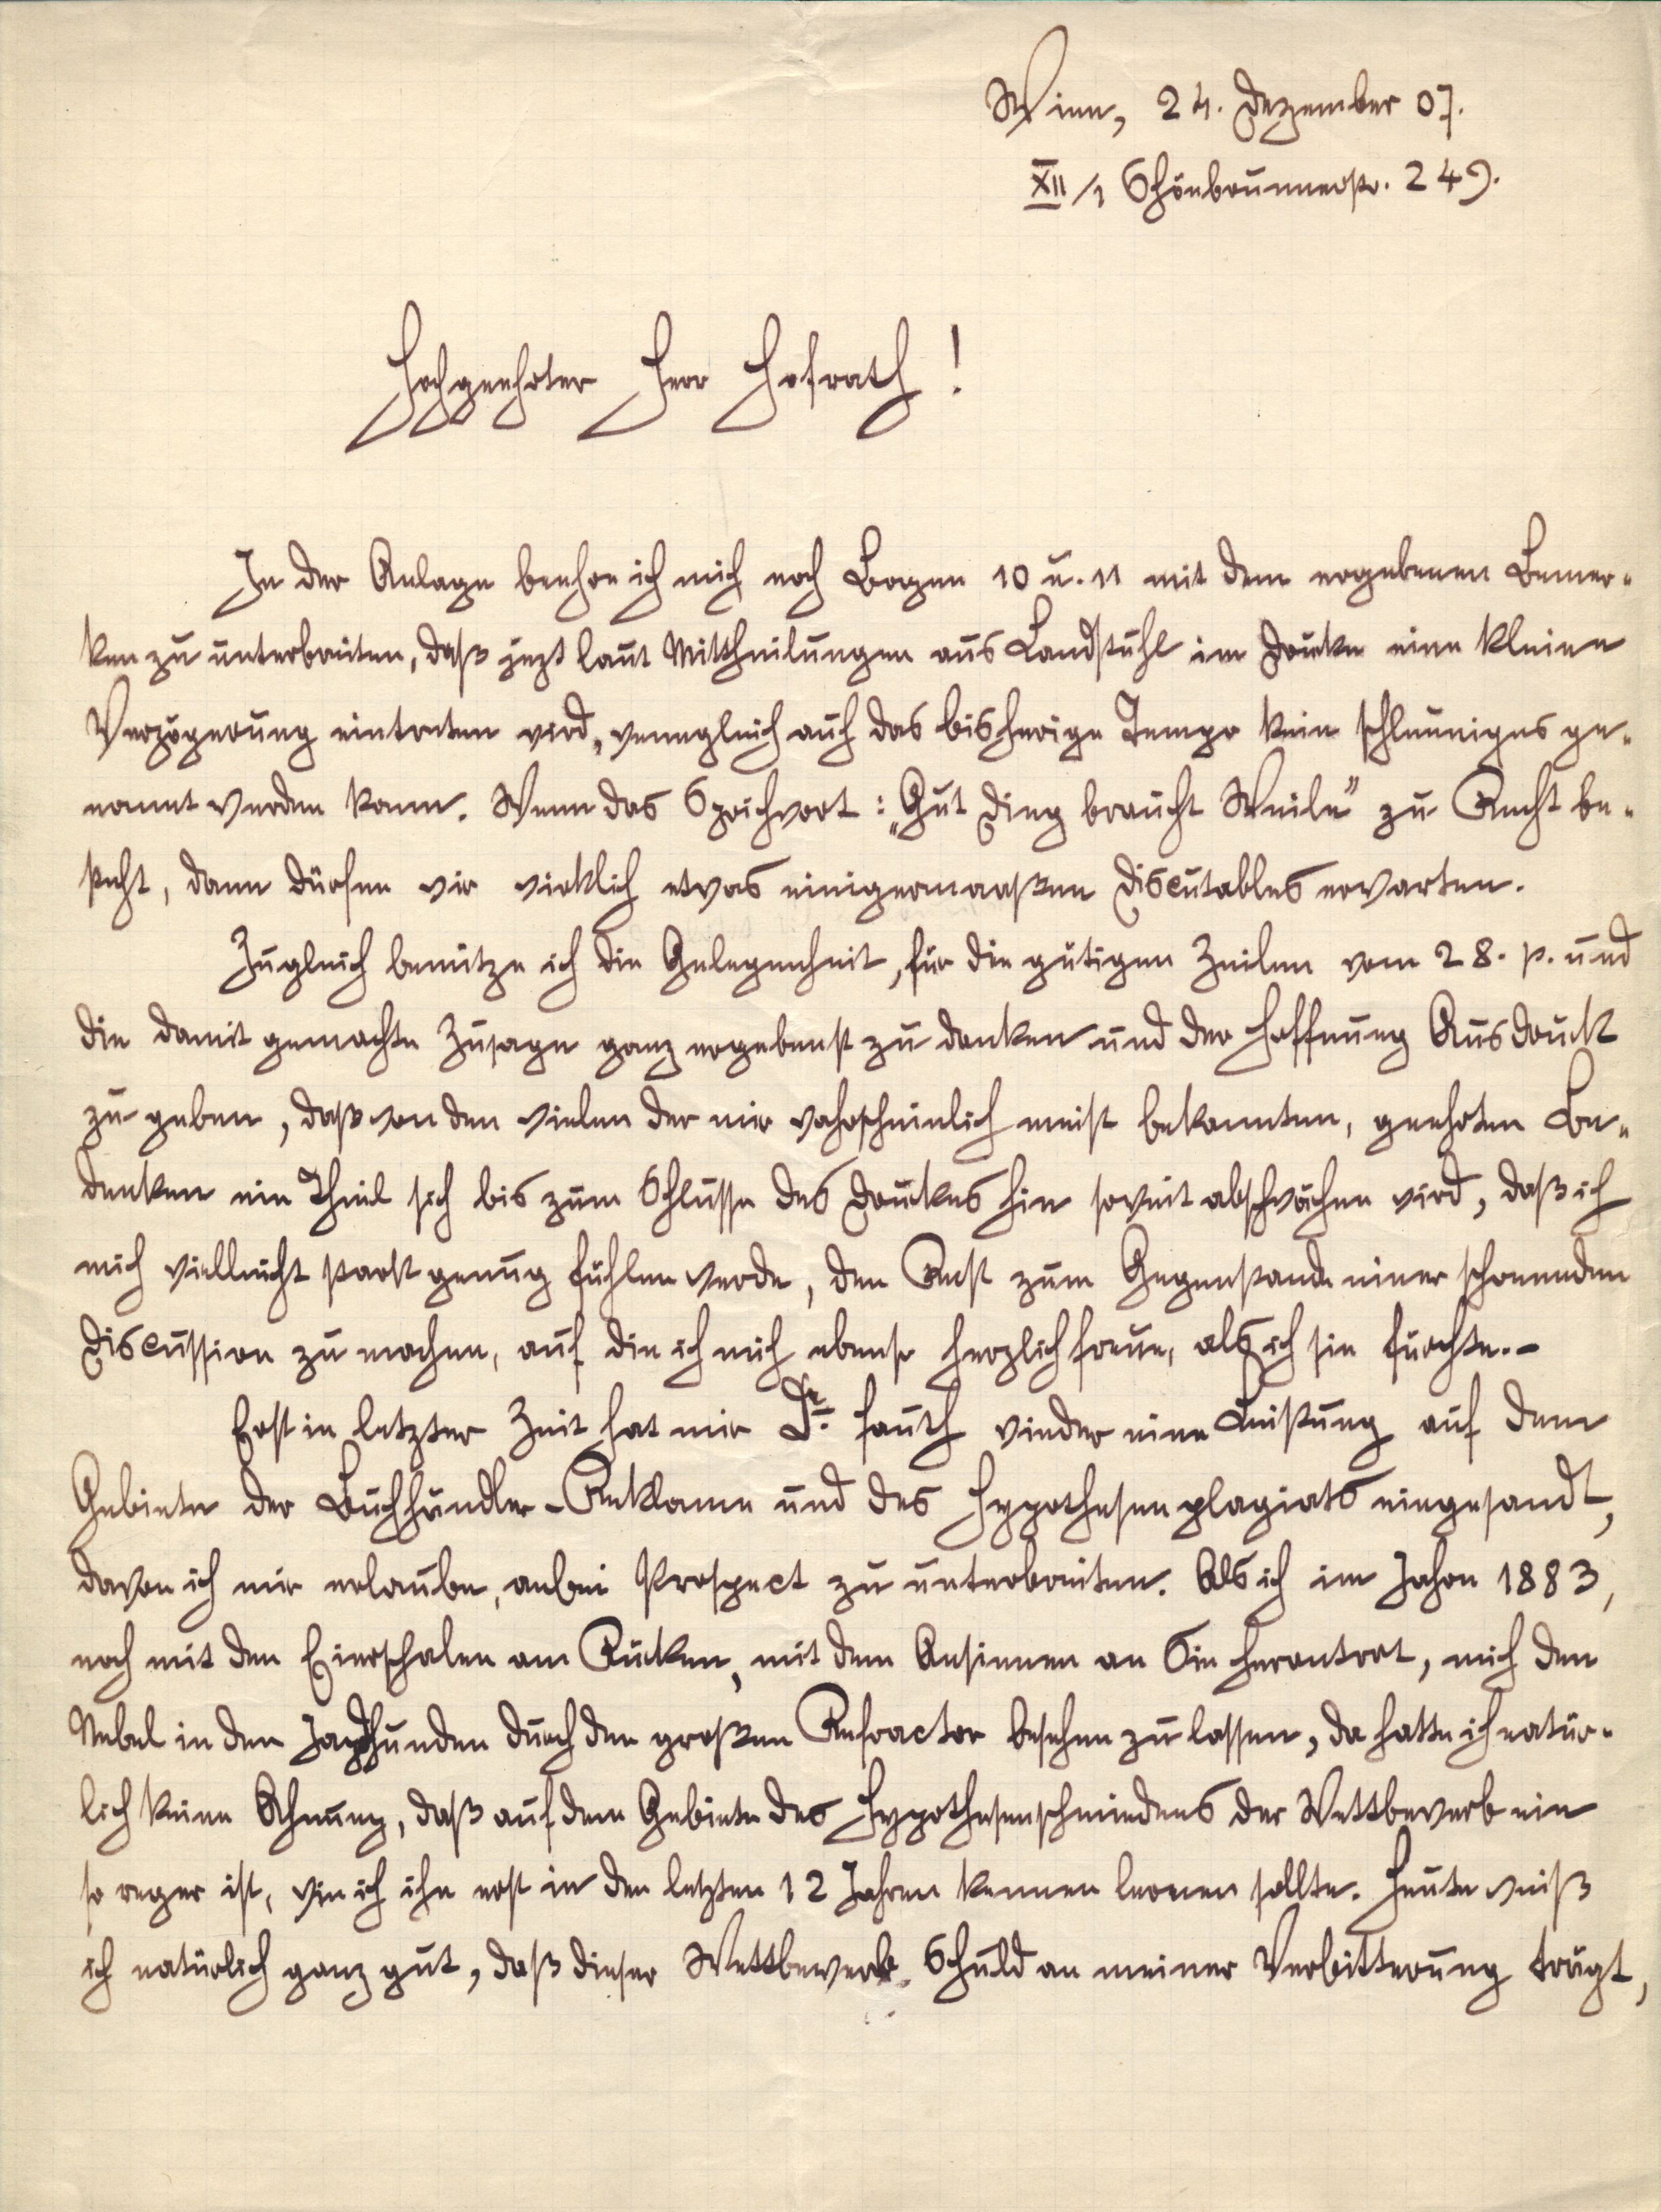 Wien, 24. Dezember 07.
XII/1 Schönbrunnerstr. 249.
Hochgeehrter Herr Hofrath!
In der Anlage beehre ich mich noch Bogen 10 u. 11 mit dem ergebenen Bemer-
ken zu unterbreiten, daß jezt laut Mittheilungen aus Landstuhl im Drucke eine kleine
Verzögerung eintreten wird, wenngleich auch das bisherige Tempo kein schleuniges ge-
nannt werden kann. Wenn das Sprichwort: „Gut Ding braucht Weile" zu Recht be-
steht, dann dürfen wir wirklich etwas einigermaaßen Discutables erwarten.
Zugleich benütze ich die Gelegenheit, für die gütigen Zeilen vom 28. p. und
die damit gemachte Zusage ganz ergebenst zu danken und der Hoffnung Ausdruck
zu geben, daß von den vielen der mir wahrscheinlich meist bekannten, geehrten Be-
denken ein Theil sich bis zum Schlusse des Druckes hin soweit abschwächen wird, daß ich
mich vielleicht stark genug fühlen werde, den Rest zum Gegenstande einer schonenden
Discussion zu machen, auf die ich mich ebenso herzlich freue, als ich sie fürchte. -
Erst in letzter Zeit hat mir Dr. Fauth wieder eine Leistung auf dem
Gebiete der Buchhändler-Reklame und des Hypothesenplagiats eingesandt,
davon ich mir erlaube, anbei Prospect zu unterbreiten. Als ich im Jahre 1883,
noch mit den Eierschalen am Rücken, mit dem Ansinnen an Sie herantrat, mich den
Nebel in den Jagdhunden durch den großen Refractor besehen zu lassen, da hatte ich natür-
lich keine Ahnung, daß auf dem Gebiete des Hypothesenschmiedens der Wettbewerb ein
so reger ist, wie ich ihn erst in den letzten 12 Jahren kennen lernen sollte. Heute weiß
ich natürlich ganz gut, daß dieser Wettbewerb Schuld an meiner Verbitterung trägt,